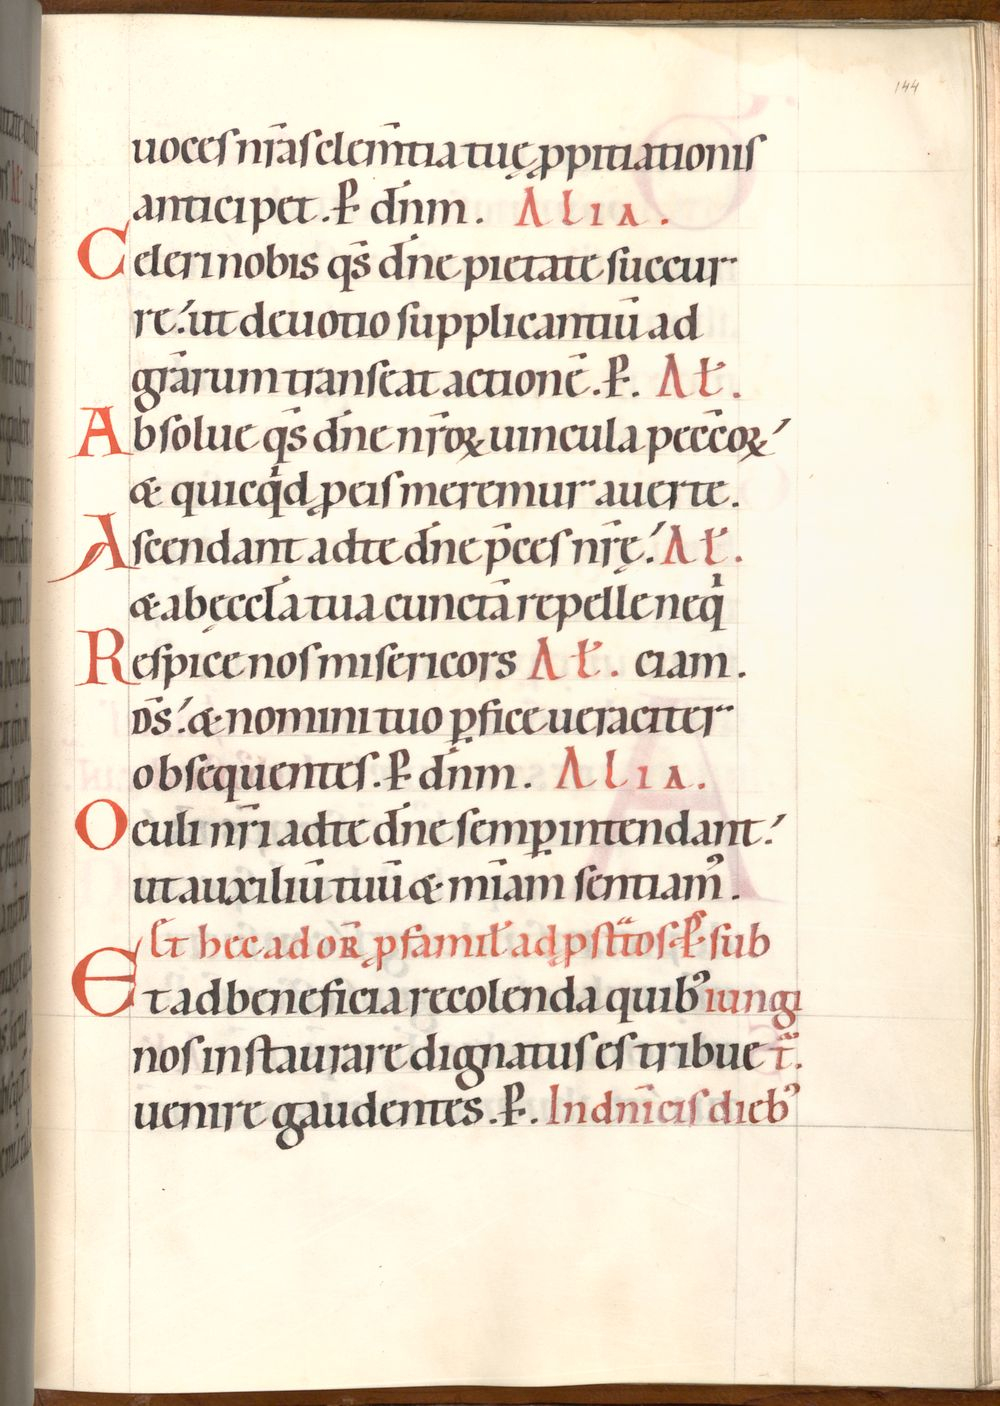 144
uoceſ nr̄aſ clem̄tia tuę ꝓpitiationiſ
anticipet. P̄ dn̄m. Alia.
Celeri nobis qs̄ dn̄e pietate ſuccur
re. ut deuotio ſupplicantiū ad
gr̄arum tranſeat actionē. P̄. Al̄.
Abſolue qs̄ dn̄e nr̄oꝝ uincula pecc̄oꝝ
& quicqͥd ꝓ eiſ meremur auerte.
Aſcendant ad te dn̄e p̄ces nr̄ę. Al̄.
& ab ęccl̄a tua cunctā repelle neqͥ
Reſpice noſ miſericors Al̄. ciam.
DS̄. & nomini tuo ꝑfice ueraciter
obſequenteſ. P̄ dn̄m. Alia.
Oculi nr̄i ad te dn̄e ſemꝑ intendant.
ut auxiliū tuū & mīam ſentiam᾽.
Et hec ad oR̄ ꝓ famil̄ ad p ſtt̄oſ. P̄ ſub
Et ad beneficia recolenda quib᾽ iungi
noſ inſtaurare dignatuſ eſ tribue t̄.
uenire gaudentes. P̄. In dn̄iciſ dieb᾽